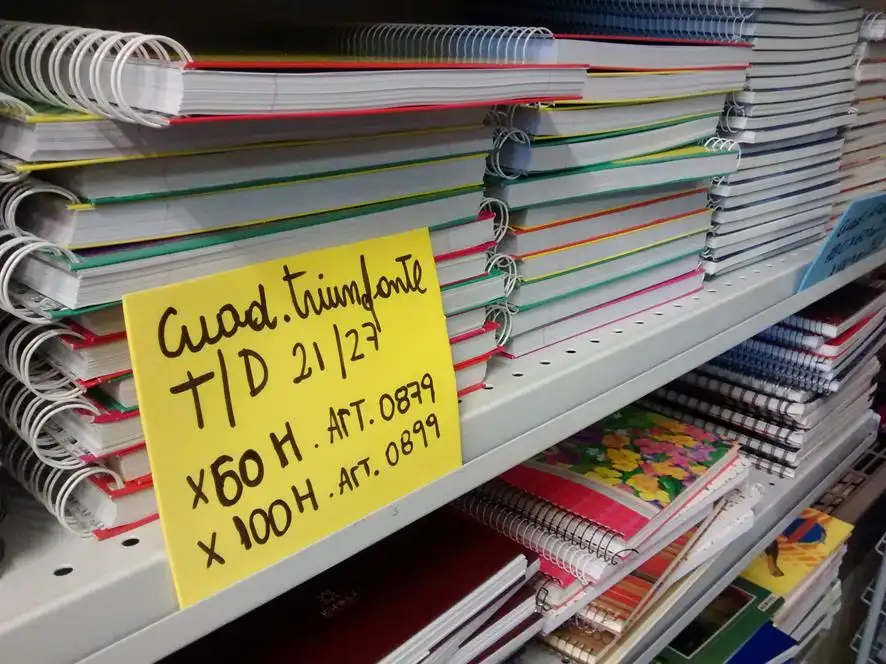 Cuad. triunfante
T/D 21/27
x60 H. ArT. 0879
x 100 H. Art. 0899